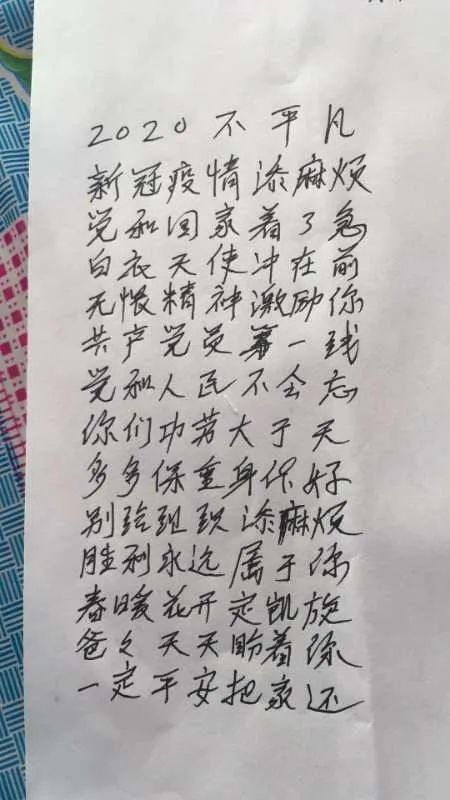 2020不平凡
新冠疫情添麻烦
党和国家着了急
白衣天使冲在前
无惧精神激励你
共产党员第一线
党和人民不会忘
你们功劳大于天
多多保重身体好
别给组织添麻烦
胜利永远属于你
春暖花开定凯旋
爸々天天盼着你
一定平安把家还